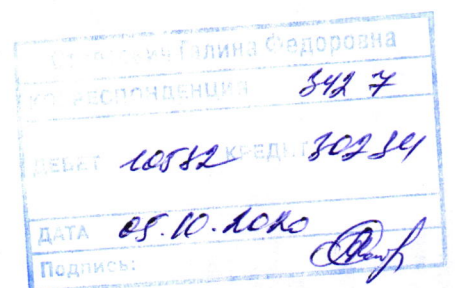 Галина Федоровна
КОРРЕСПОНДЕНЦИЯ 3427
ДЕБЕТ 10582 КРЕДИТ 30234
ДАТА 05.10.2020
Подпись: